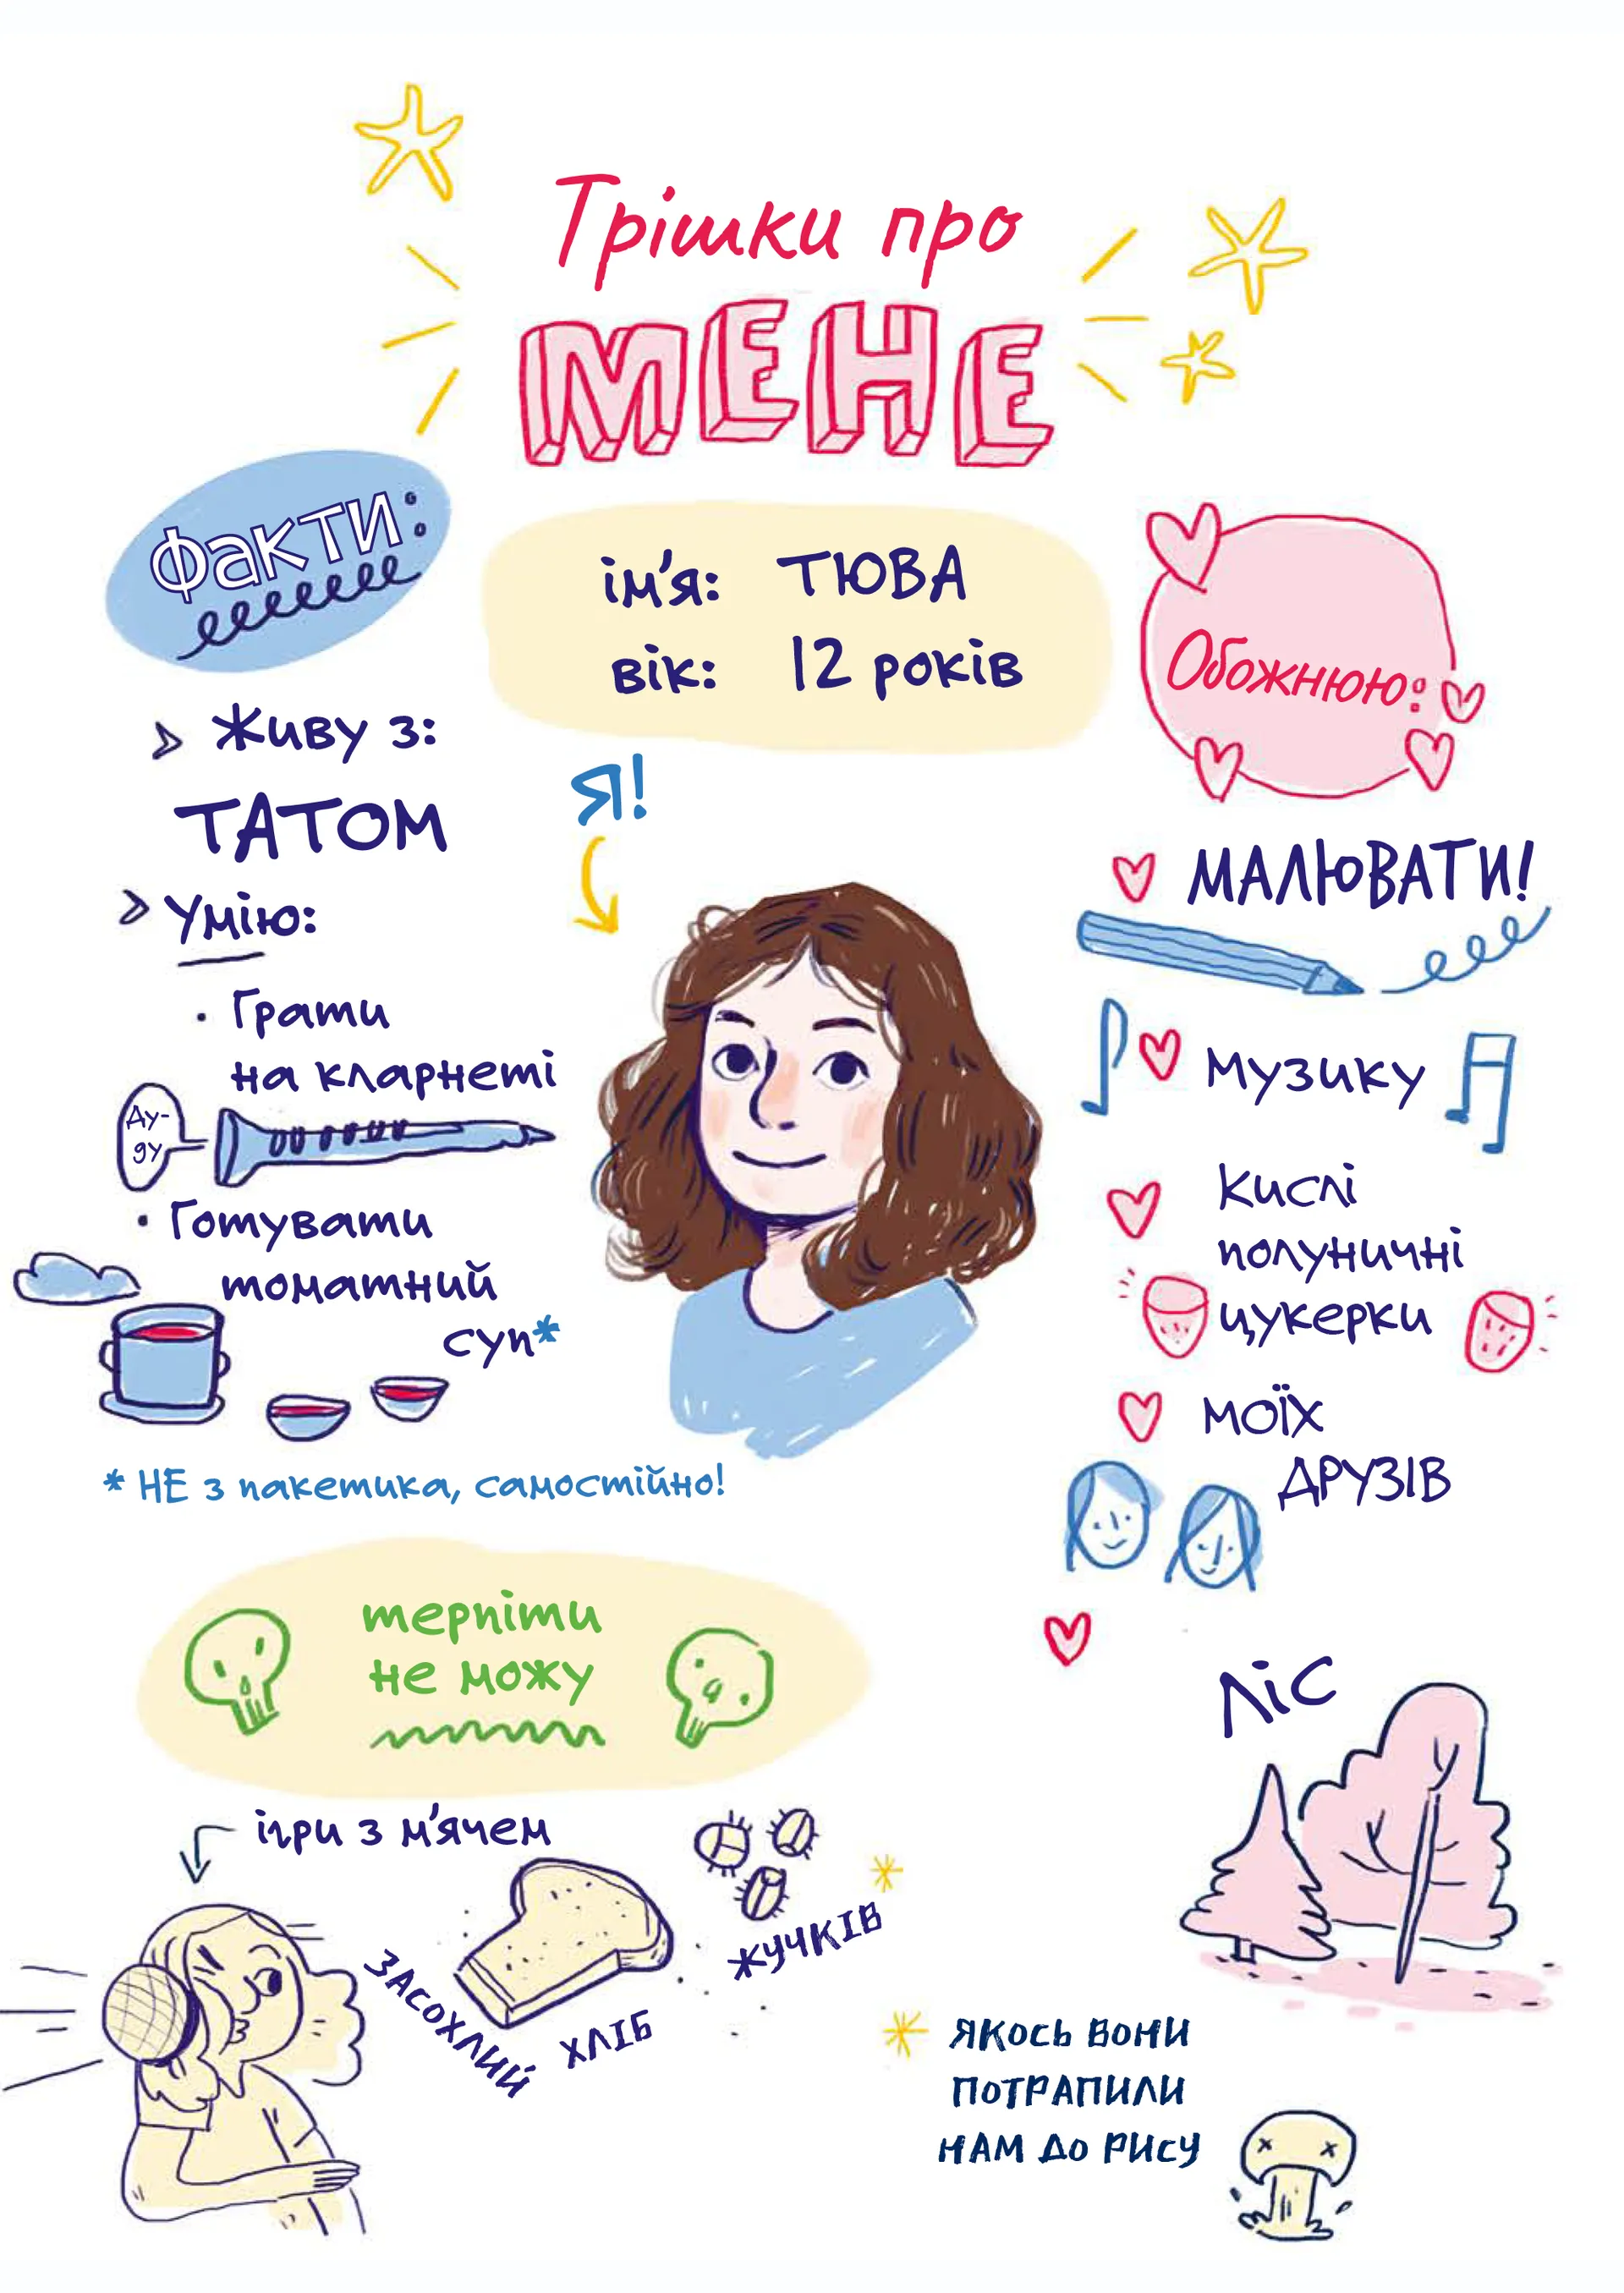 Трішки про
МЕНЕ
Факти:
ім'я: ТЮВА
вік: 12 років
Живу з:
ТАТОМ
Умію:
· Грати
на кларнеті
Ду-
ду
· Готувати
томатний
суп*
* НЕ з пакетика, самостійно!
Я!
Обожнюю:
МАЛЮВАТИ!
Музику
Кислі
полуничні
цукерки
МОЇХ
ДРУЗІВ
ліс
терпіти
не можу
ігри з м'ячем
ЗАСОХЛИЙ ХЛІБ
ЖУЧКІВ*
* ЯКОСЬ ВОНИ
ПОТРАПИЛИ
НАМ ДО РИСУ